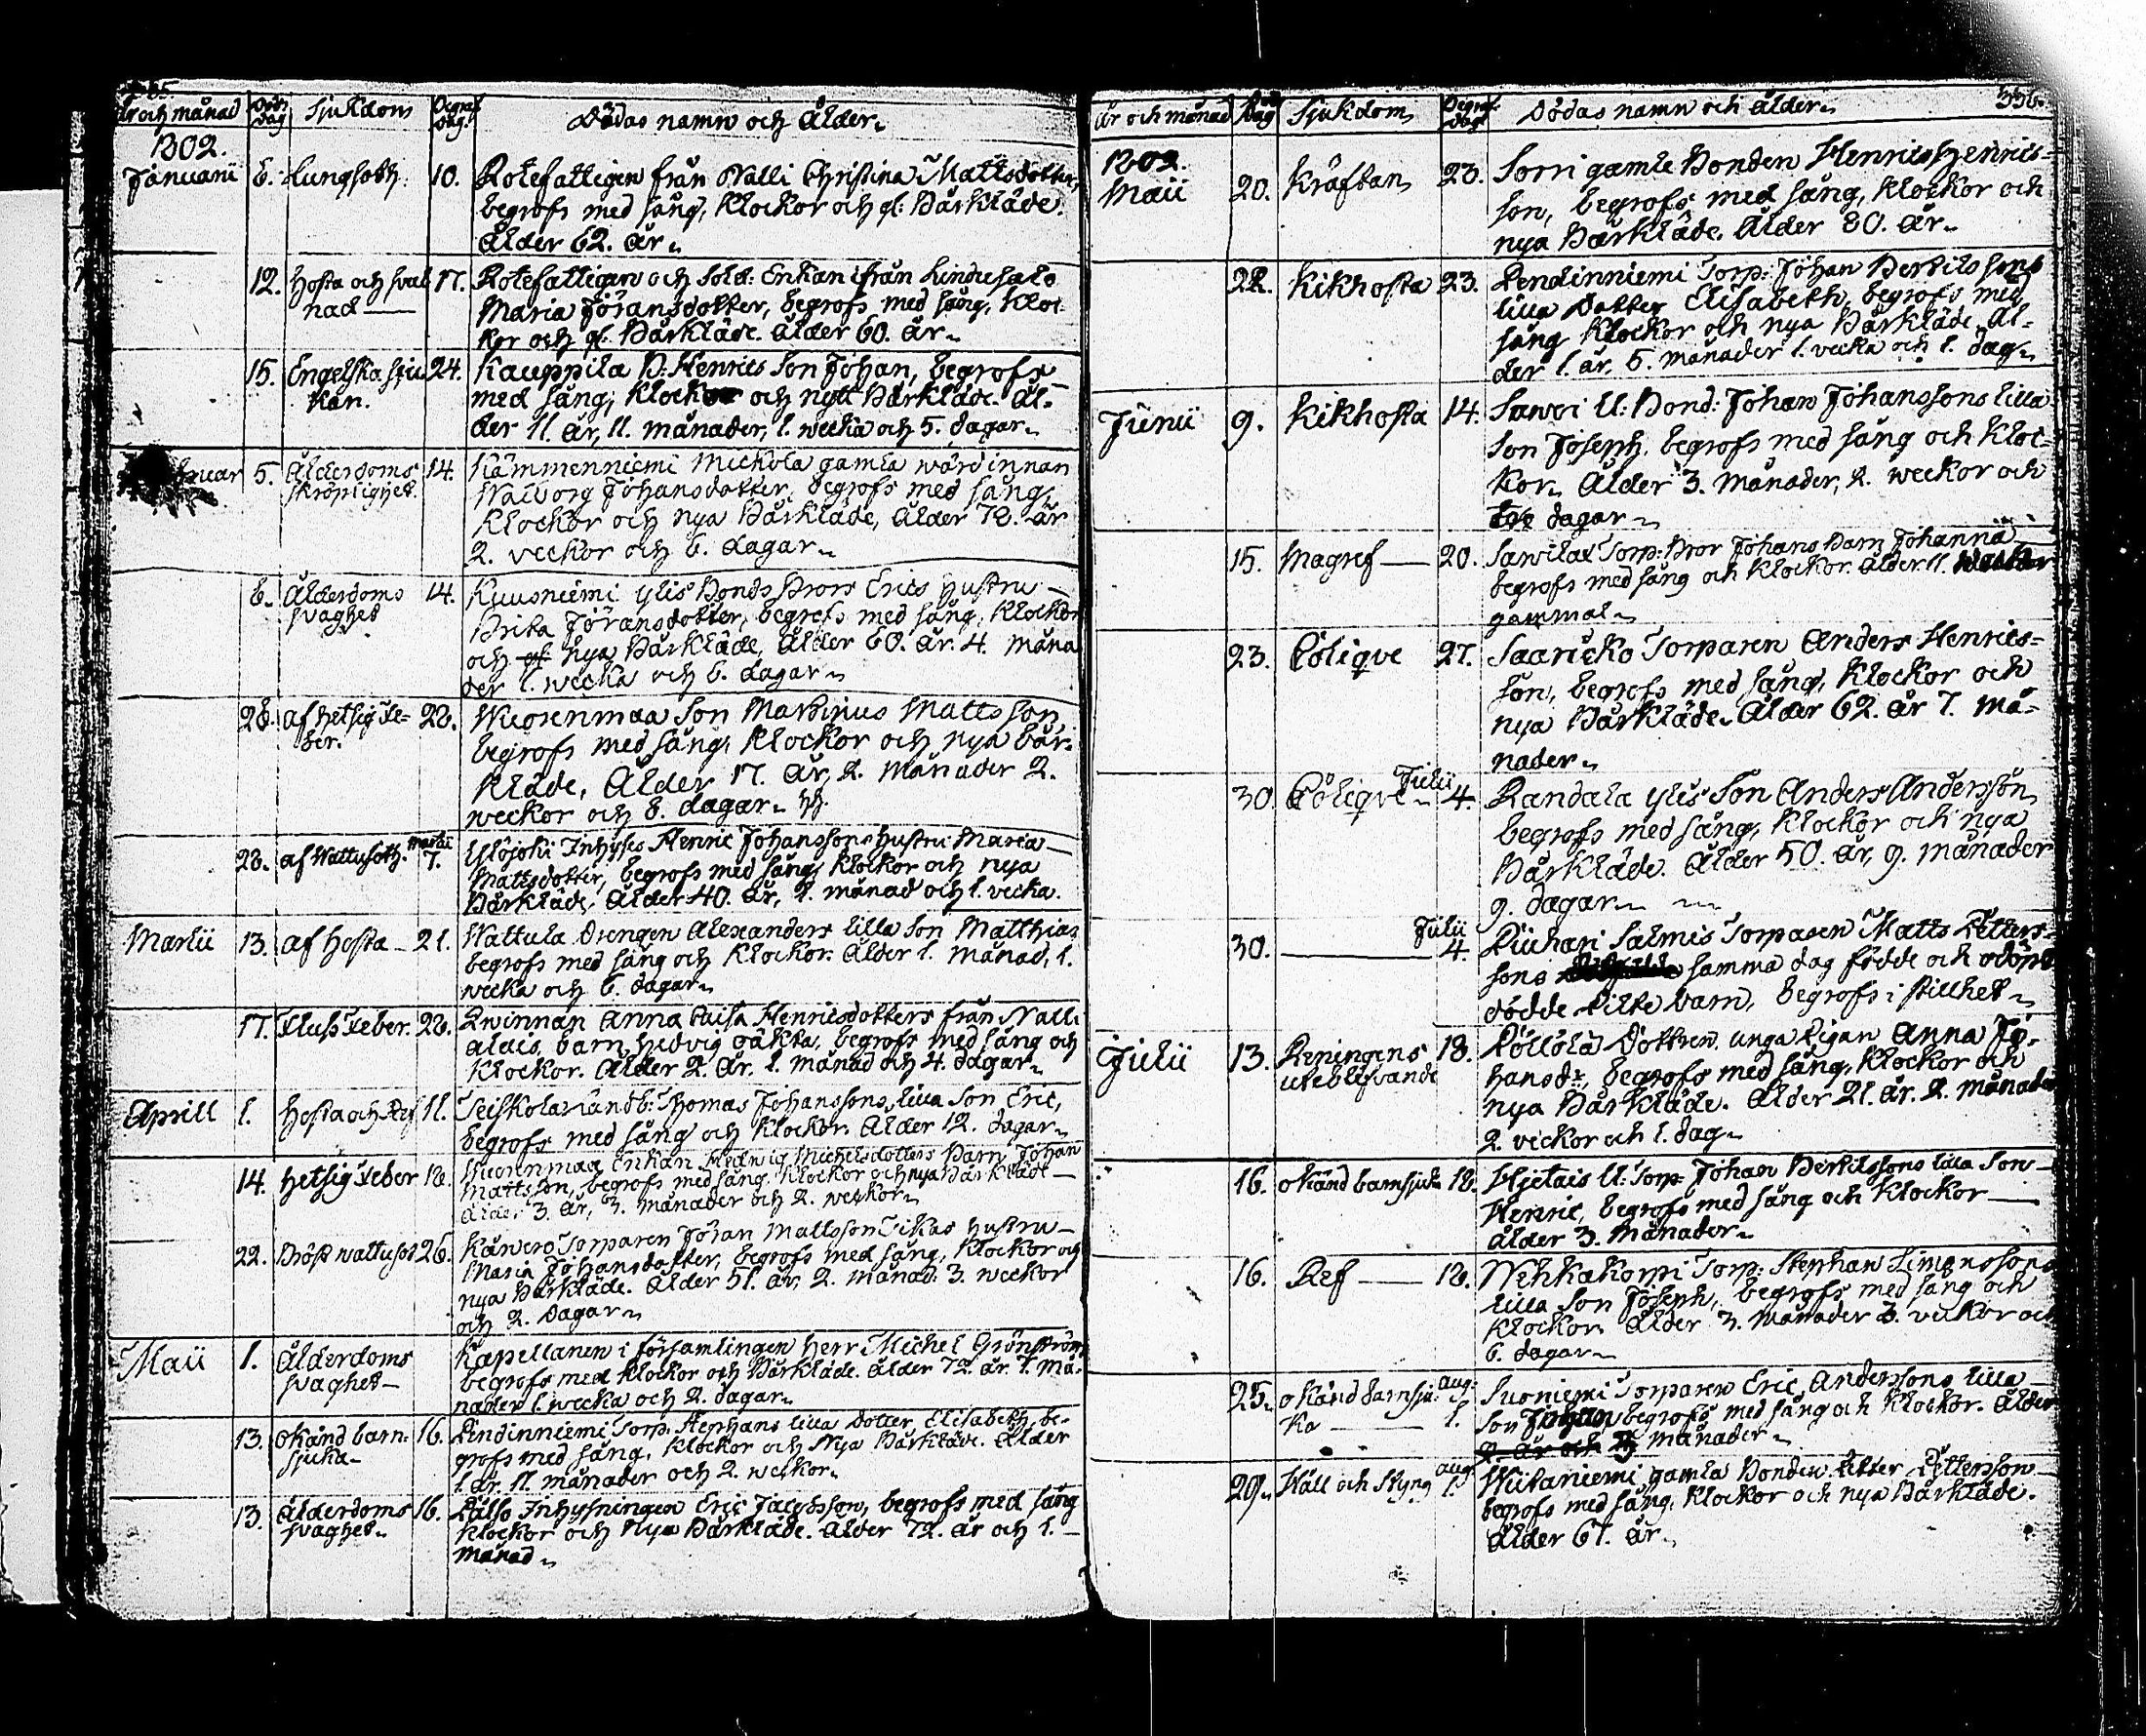 år och månad Död dag Sjukdom Begraf. dag. Dödas namn och Ålder.
1802.
Januarii 6. Lungsoth. 10. Rotefattigen från Nalli Christina Mattsdotter,
begrofs med sång, Klockor och gl. Bårkläde.
Ålder 62. år.
12. Hosta och sval 17. Rotefattigen och Sold: Enkan från Lindusalo
nad Maria Jöransdotter, begrofs med sång, Kloc-
kor och gl. Bårkläde. ålder 60. år.
15. Engelska sju 24. Kauppila B: Henrics Son Johan, begrofs
kan. med sång, Klockor och nytt Bårkläde. Ål-
der 11. år, 11. månader, 1. wecka och 5. dagar.
5. Ålderdoms 14. Kämmenniemi Mickola gamla wärdinnan
skröplighet. Walborg Johansdotter, begrofs med sång,
Klockor och nya Bårkläde, Ålder 78. år
2. veckor och 6. dagar.
6. Ålderdoms 14. Kuusniemi ylis Bonds Brors Erics hustru
svaghet Brita Jöransdotter, begrofs med sång, Klockor
och nya Bårkläde, Ålder 60. år. 4. måna
der 1. wecka och 6. dagar.
28. af hetsig Fe- 28. Wuorenmaa Son Martinus Mattsson,
ber. begrofs med sång, Klockor och nya bår-
kläde, Ålder 17. år, 2. månader 2.
weckor och 8. dagar.
28. af Wattusoth. Martii 7. Ylöjoki Inhyses Henric Johanssons hustru Maria
Mattsdotter, begrofs med sång, Klockor och nya
Bårkläde, Ålder 40. år, 1. månad och 1. vecka.
Martii 13. af Hosta 21. Wattula Drengen Alexanders lilla Son Matthias
begrofs med sång och Klockor. Ålder 1. månad, 1.
wecka och 6. dagar.
17. Fluss Feber. 28. Qwinnan Anna Caisa Henricsdotters från Nalli
barn, Hedvig oäkta, begrofs med sång och
Klockor. Ålder 2. år. 1. månad och 4. dagar.
Aprill 1. Hosta och Ref 11. Seiskola Landb: Thomas Johanssons lilla Son Eric,
begrofs med sång och Klockor. Ålder 12. dagar.
14. hetsig Feber 18. Wuorenmaa Enkan Hedwig Michelsdotters Barn Johan
Mattsson, begrofs med sång, Klockor och nya Bårkläde
Ålder 3. år, 3. månader och 2. veckor.
22. Bröst wattusot 26. Torparen Johan Mattsson hustru
Maria Johansdotter, begrofs med sång, Klockor och
nya Bårkläde. Ålder 51. år, 2. månad: 3. weckor
och 2. dagar.
Maii 1. Ålderdoms Kapellanen i församlingen Herr Michel Grönström
svaghet begrofs med Klockor och Bårkläde. Ålder 72. år. 7. må-
nader 1. wecka och 2. dagar.
13. Okänd barn- 16. Lendinniemi Torp: Stephans lilla Dotter Elisabeth, be-
sjuka grofs med sång, Klockor och Nya Bårkläde. Ålder
1. år. 11. månader och 2. weckor.
13. Ålderdoms 16. Inhysningen Eric Jacobsson, begrofs med sång
svaghet. Klockor och Nya Bårkläde. Ålder 72. år och 1.
månad.
336.
År och månad Död Dag Sjukdom Begraf. dag Dödas namn och ålder.
1802.
Maii 20. Kräftan 23. Sorri gamle Bonden Henric Henrics-
son, begrofs med sång, Klockor och
nya Bårkläde. Ålder 80. år.
22. Kikhosta 23. Lendinniemi Torp: Johan Bertilssons
lilla Dotter Elisabeth, begrofs med
sång Klockor och nya Bårkläde. Ål-
der 1. år, 5. månader 1. vecka och 1. dag.
Junii 9. Kikhosta 14. Sawoi U: Bond: Johan Johanssons lilla
Son Joseph, begrofs med sång och Kloc-
kor. Ålder 3. Månader, 2. weckor och
dagar.
15. Magref 20. Torp: Bror Johans Barn Johanna
begrofs med sång och Klockor. Ålder 11. weckor
gammal.
23. Colique 27. Saaricko Torparen Anders Henrics-
son, begrofs med sång, Klockor och
nya Bårkläde. Ålder 62. år 7. må-
nader.
30. Colique Julii 4. Pandala ylis Son Anders Andersson,
begrofs med sång, Klockor och nya
Bårkläde. Ålder 50. år, 9. månader
9. dagar.
30. Julii 4. Salmis Torparen Matts Petters-
sons samma dag födde och odöpt
dödde barn, begrofs i stillhet.
Julii 13. Reningens 18. Pöllölä Dottren unga Pigan Anna Jo-
uteblifvande hansdr, begrofs med sång, Klockor och
nya Bårkläde. Ålder 21. år. 2. månader
2. veckor och 1. dag.
16. okänd barnsjuka 18. U: Torp: Johan Bertilssons lilla Son
Henric, begrofs med sång och Klockor
Ålder 3. Månader.
16. Ref 18. Wehkakorpi Torp: Stephan Simonssons
lilla Son Joseph, begrofs med sång och
Klockor. Ålder 3. Månader 3. veckor och
6. dagar.
25. okänd barnsju- aug: 1. Suoniemi Torparen Eric Anderssons lilla
ka Son Johan begrofs med sång och Klockor. Ålder
månader.
29. Håll och Styng aug. 1. gamla Bonden Petter Pettersson
begrofs med sång, Klockor och nya Bårkläde.
Ålder 67. år.